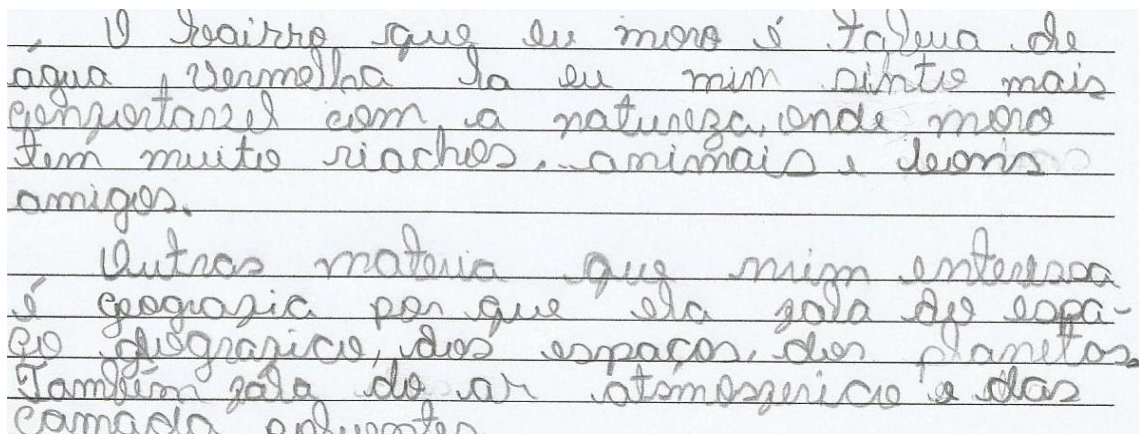 O bairro que eu moro é Taleua de
água vermelha la eu mim sinto mais
confortavel com a natureza, onde moro
tem muito riachos, animais e bons
amigos.
Outras materia que mim enteressa
é geografia por que ela fala do espa-
ço geografico, dos espaços, dos planetas.
Também fala do ar atomosferico e das
camada